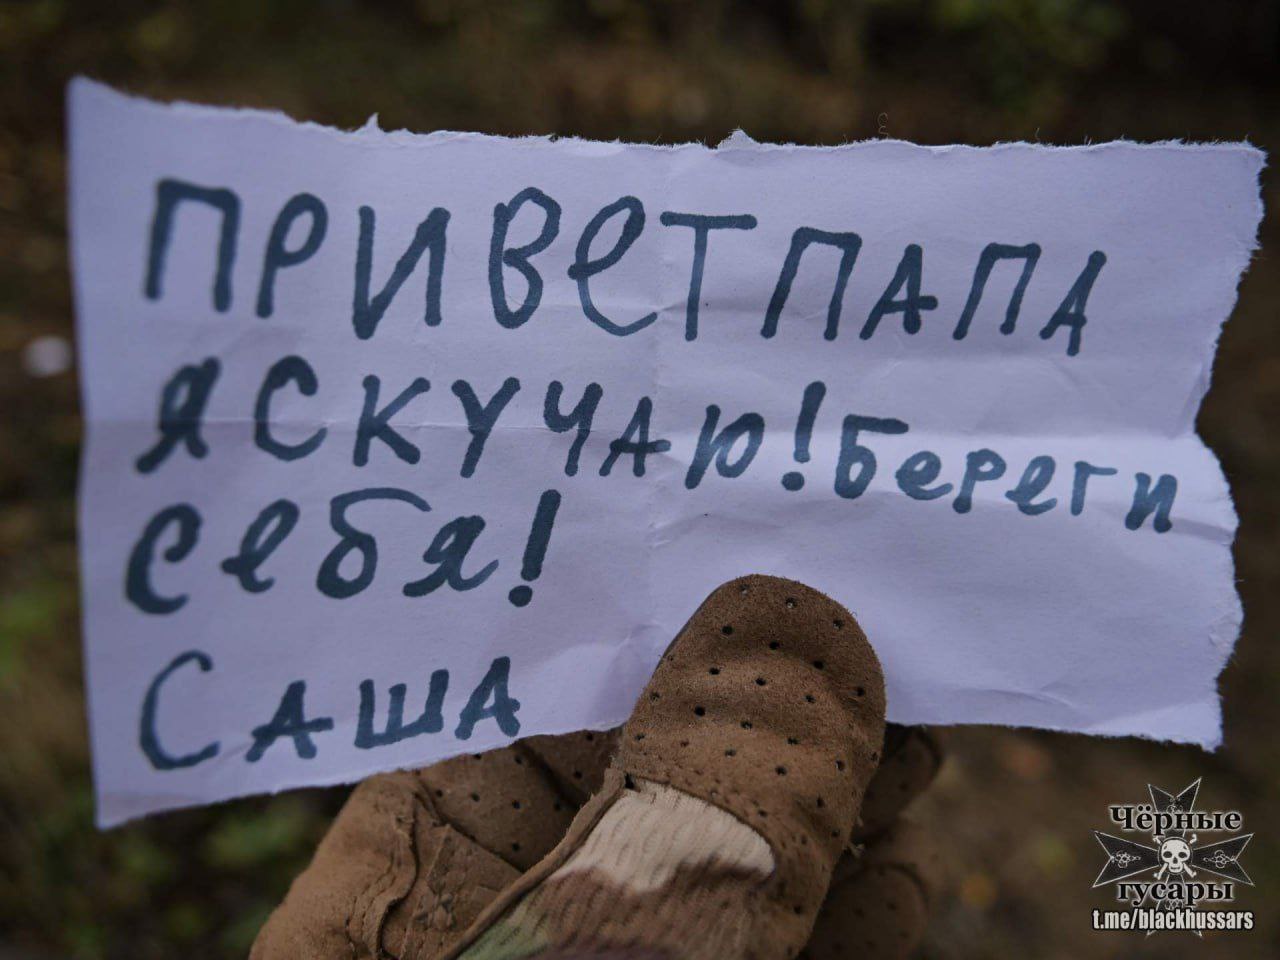 ПРИВЕТ ПАПА
Я СКУЧАЮ! Береги
себя!
САША
Чёрные
гусары
t.me/blackhussars